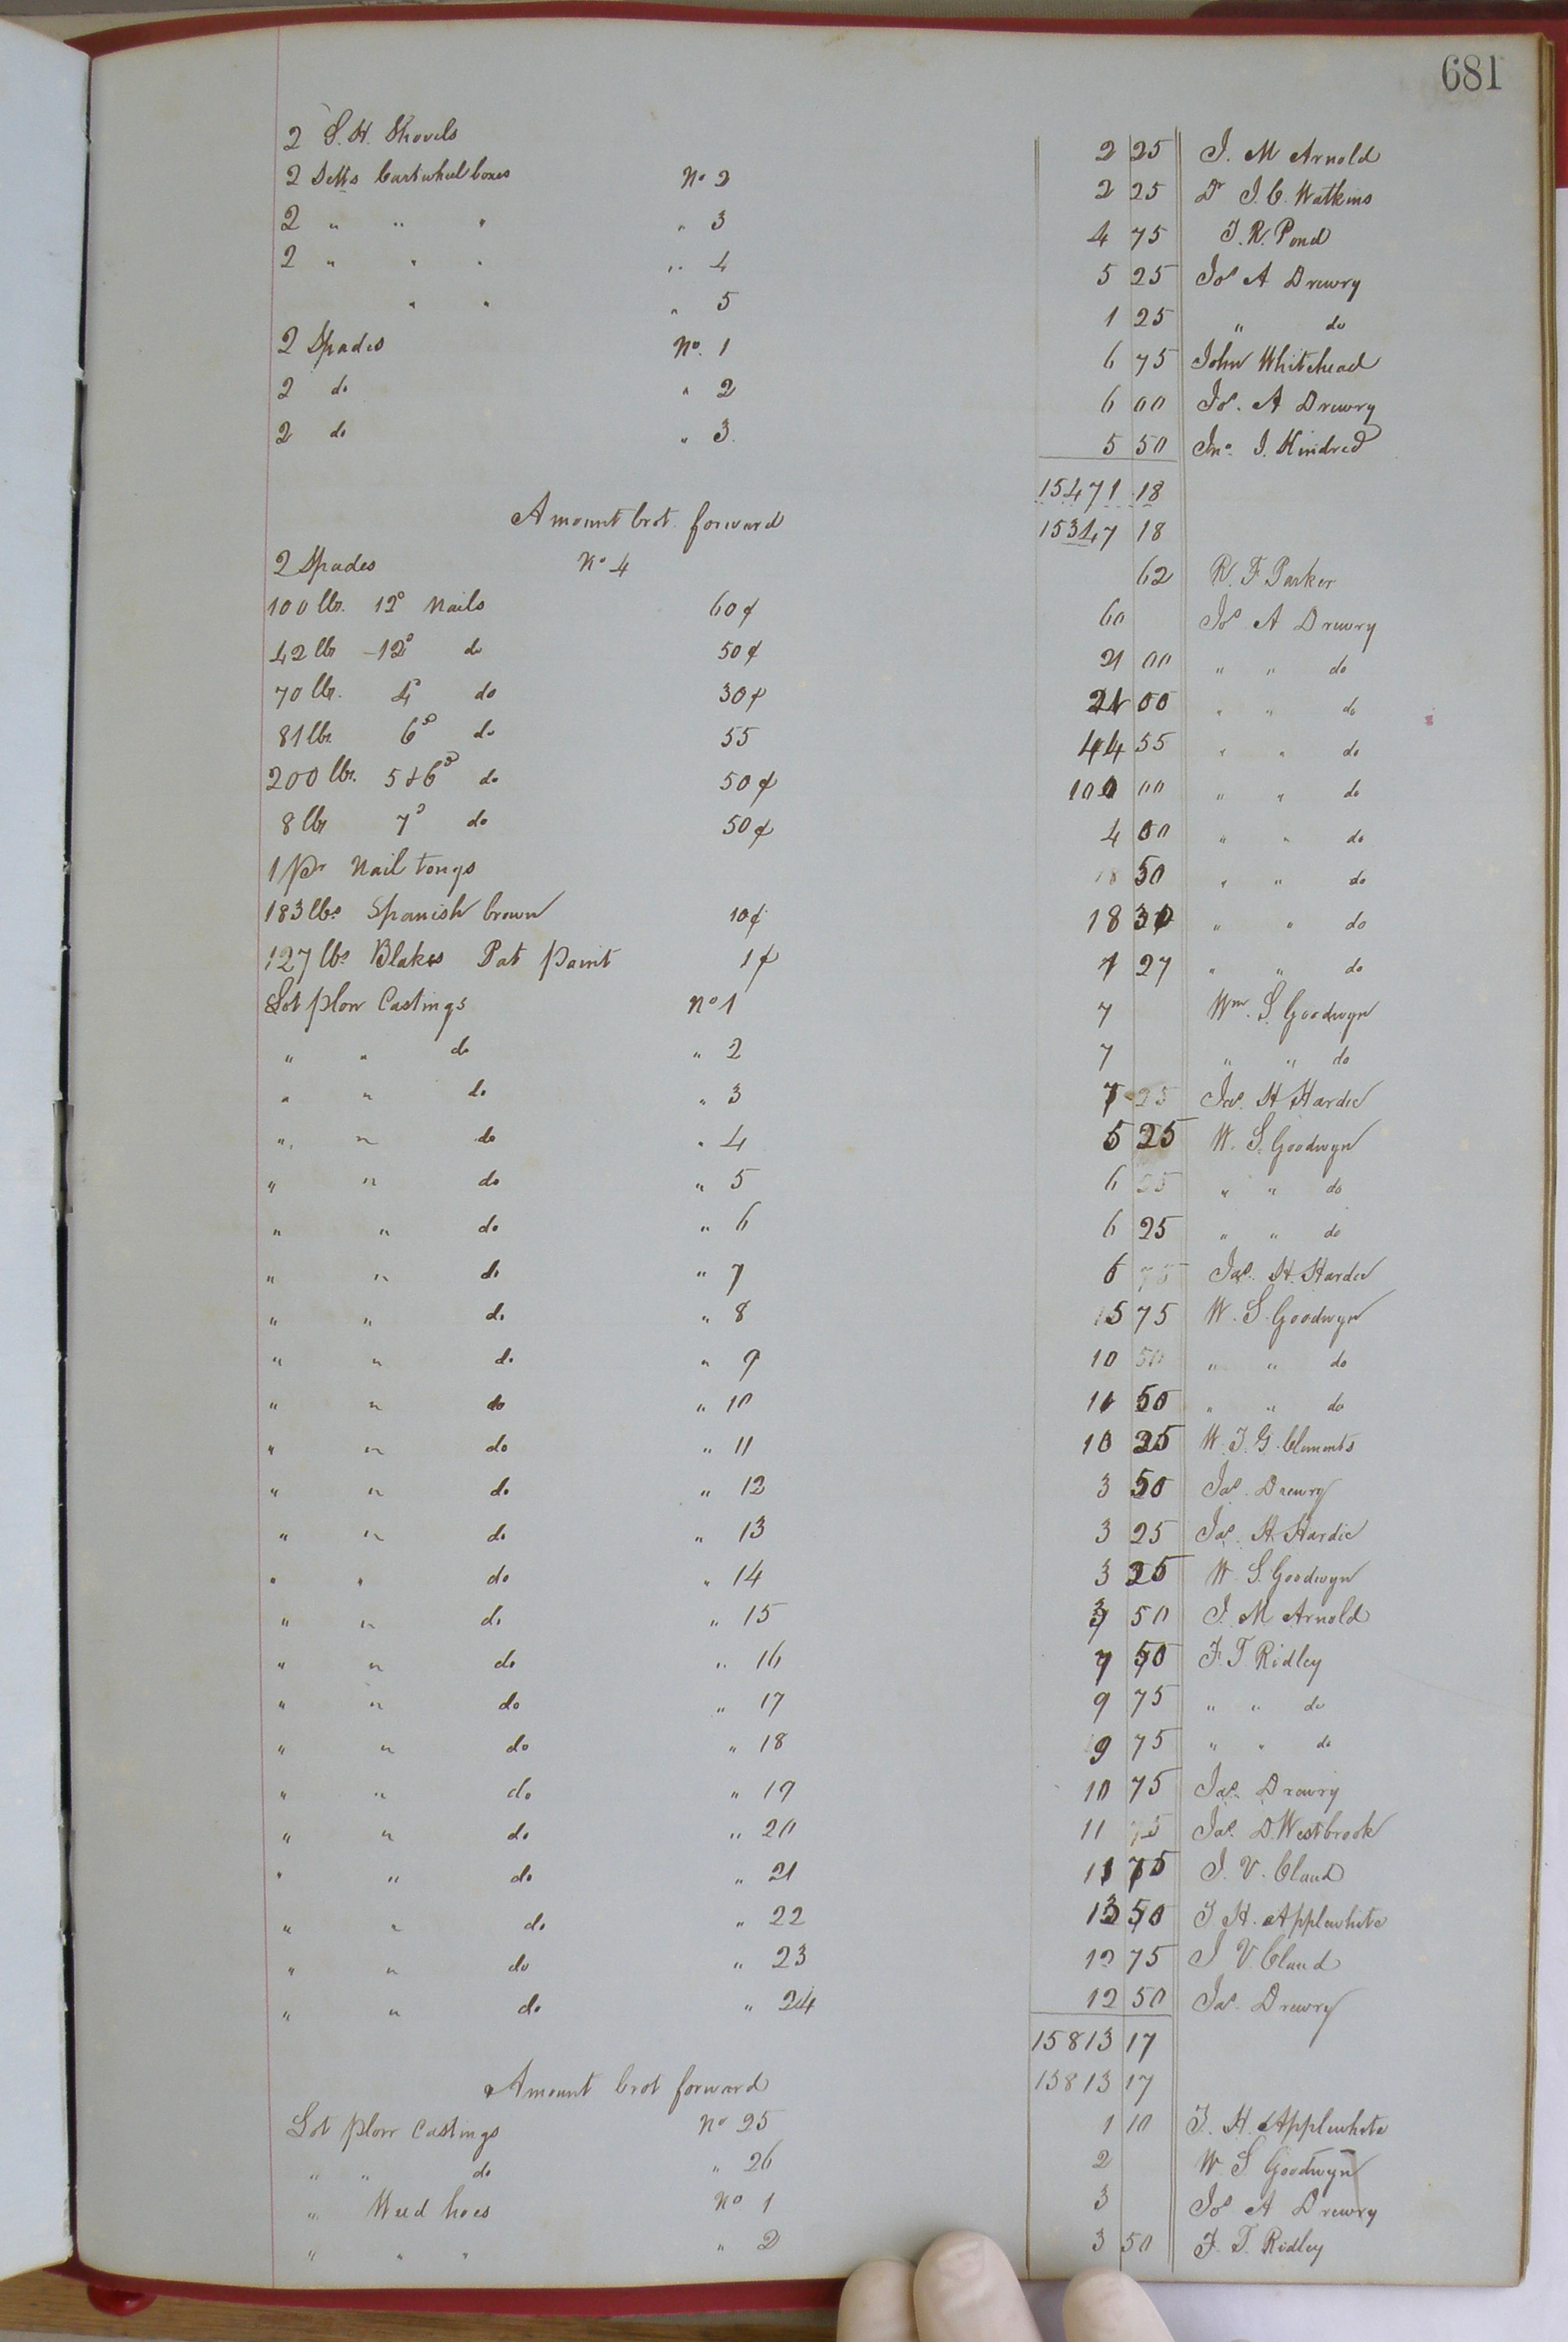 681
2 S. H. Shovels 2 25 J. M Arnold
2 Setts Cart wheel boxes No 2 2 25 Dr J. C. Watkins
2 " " " " 3 4 75 J. R. Pond
2 " " " " 4 5 25 Jos A Drewry
" " " 5 1 25 " do
2 Spades No. 1 6 75 John Whitehead
2 do " 2 6 00 Jos. A Drewry
2 do " 3. 5 50 Jno. J. Kindred
15471 18
Amount brot. forward 15347 18
2 Spades No 4 62 R. F Parker
100 lbs. 12d Nails 60¢ 60 Jos A Drewry
42 lbs 12d do 50¢ 21 00 " " do
70 lbs. 4d do 30¢ 21 00 " " do
81 lbs 6d do 55 44 55 " " do
200 lbs. 5 & 6d do 50¢ 100 00 " " do
8 lbs 7d do 50¢ 4 00 " " do
1 pr Nail tongs 50 " " do
183 lbs Spanish brown 10¢ 18 30 " " do
127 lbs Blakes Pat paint 1¢ 1 27 " " do
Lot plow Castings No 1 7 Wm. S. Goodwyn
" " do " 2 7 " " do
" " do " 3 7 25 Jas. H Hardie
" " do " 4 5 25 W. S. Goodwyn
" " do " 5 6 25 " " do
" " do " 6 6 25 " " do
" " do " 7 6 75 Jas. H. Hardie
" " do " 8 15 75 W. S. Goodwyn
" " do " 9 10 50 " " do
" " do " 10 10 50 " " do
" " do " 11 10 25 W. J. G. Clements
" " do " 12 3 50 Jas. Drewry
" " do " 13 3 25 Jas. H. Hardie
" " do " 14 3 25 W S. Goodwyn
" " do " 15 50 J. M Arnold
" " do " 16 7 50 F. T Ridley
" " do " 17 9 75 " " do
" " do " 18 9 75 " " do
" " do " 19 10 75 Jas. Drewry
" " do " 20 11 75 Jas. D. Westbrook
" " do " 21 11 75 J. V. Claud
" " do " 22 13 50 J H. Applewhite
" " do " 23 12 75 J V. Claud
" " do " 24 12 50 Jas. Drewry
15813 17
Amount brot forward 15813 17
Lot plow Castings No 25 1 10 J. H. Applewhite
" " do " 26 2 W S Goodwyn
" Weed hoes No 1 3 Jos A Drewry
" " " " 2 3 50 F. T. Ridley